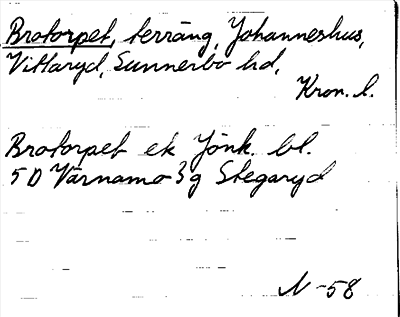 Brotorpet, terräng, Johanneshus,
Vittaryd, Sunnerbo hd,
Kron. l.
Brotorpet ek Jönk. bl.
5 D Värnamo 3 g Stegaryd
N -58